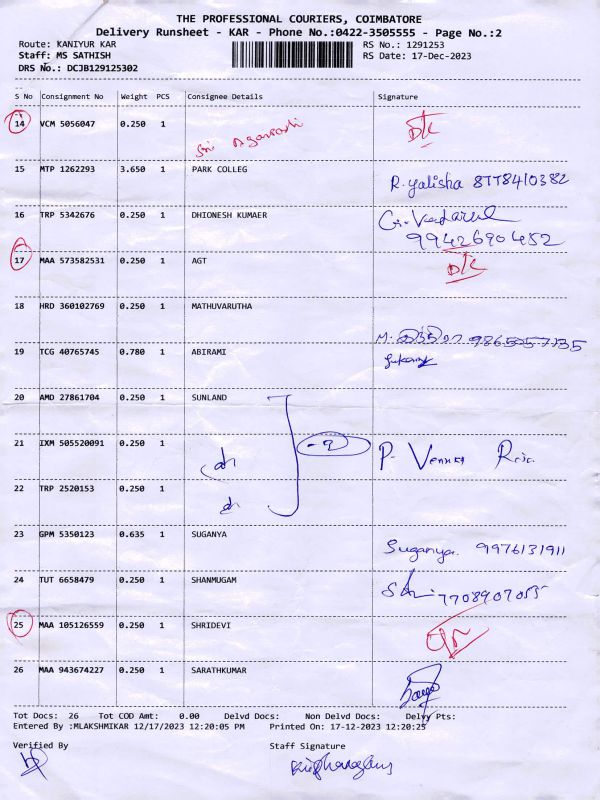 THE PROFESSIONAL COURIERS, COIMBATORE
Delivery Runsheet - KAR - Phone No.:0422-3505555 - Page No.:2
Route: KANIYUR KAR RS No.: 1291253
Staff: MS SATHISH RS Date: 17-Dec-2023
DRS No.: DCJB129125302
S No Consignment No Weight PCS Consignee Details Signature
14 VCM 5056047 0.250 1 Sri
15 MTP 1262293 3.650 1 PARK COLLEG R. yalisha 8778410382
16 TRP 5342676 0.250 1 DHIONESH KUMAER
9942690452
17 MAA 573582531 0.250 1 AGT
18 HRD 360102769 0.250 1 MATHUVARUTHA
19 TCG 40765745 0.780 1 ABIRAMI
20 AMD 27861704 0.250 1 SUNLAND
21 IXM 505520091 0.250 1 P. Venkat
22 TRP 2520153 0.250 1
23 GPM 5350123 0.635 1 SUGANYA Suganya. 9976131911
24 TUT 6658479 0.250 1 SHANMUGAM 7708907055
25 MAA 105126559 0.250 1 SHRIDEVI
26 MAA 943674227 0.250 1 SARATHKUMAR
Tot Docs: 26 Tot COD Amt: 0.00 Delvd Docs: Non Delvd Docs: Delvy Pts:
Entered By :MLAKSHMIKAR 12/17/2023 12:20:05 PM Printed On: 17-12-2023 12:20:25
Verified By Staff Signature